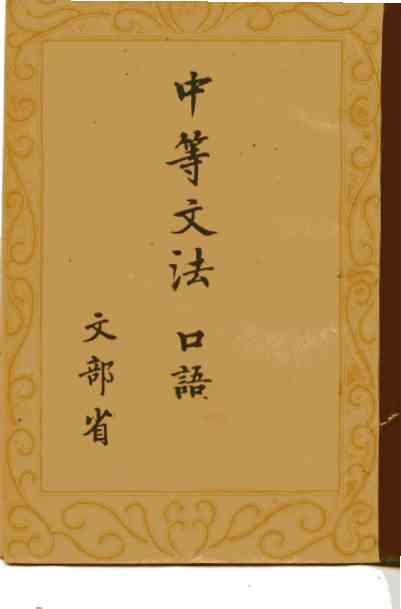 中等文法 口語
文部省